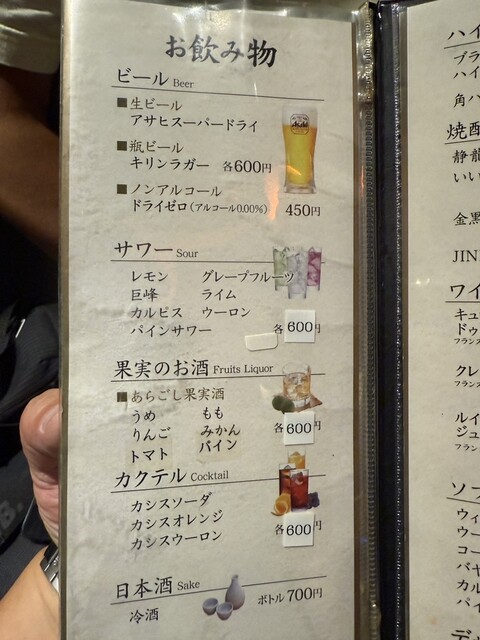 お飲み物
ビール Beer
■生ビール
アサヒスーパードライ
■瓶ビール
キリンラガー 各600円
■ノンアルコール
ドライゼロ(アルコール0.00%) 450円
サワー Sour
レモン グレープフルーツ
巨峰 ライム
カルピス ウーロン
パインサワー 各600円
果実のお酒 Fruits Liquor
■あらごし果実酒
うめ もも
りんご みかん
トマト パイン 各600円
カクテル Cocktail
カシスソーダ
カシスオレンジ
カシスウーロン 各600円
日本酒 Sake
冷酒 ボトル 700円
ハイ
ブラ
ハイ
角ハ
焼酎
静龍
いい
金黒
JIN
ワイ
キュ
ドゥ
フランス
クレ
フランス
ルイ
ジュ
フラン
ソー
ウィ
ウー
コー
バヤ
カル
パイ